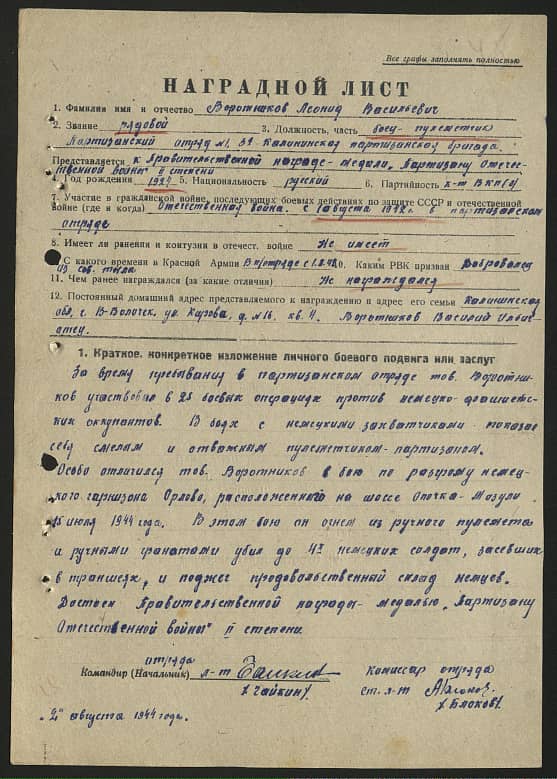 Все графы заполнять полностью
НАГРАДНОЙ ЛИСТ
1. Фамилия имя и отчество Воротников Леонид Васильевич
2. Звание рядовой 3. Должность, часть боец-пулеметчик
Партизанский отряд №1, 31 Калининская партизанская бригада.
Представляется к Правительственной награде-медали „Партизану Отече-
ственной Войны" II степени
4. Год рождения 1924 5. Национальность русский 6. Партийность к-т ВКП(б)
7. Участие в гражданской войне, последующих боевых действиях по защите СССР и отечественной
войне (где и когда) Отечественная война. с 1 августа 1942г. в партизанском
отряде
8. Имеет ли ранения и контузии в отечест. войне Не имеет
С какого времени в Красной Армии В п/отряде с 1.8.42 0. Каким РВК призван Доброволец
из сов. тыла
11. Чем ранее награждался (за какие отличия) Не награждался
12. Постоянный домашний адрес представляемого к награждению и адрес его семьи Калининская
обл, г. В-Волочек, ул. Кирова, д. №16. кв. 4. Воротников Василий Ильич-
отец.
1. Краткое, конкретное изложение личного боевого подвига или заслуг
За время пребывания в партизанском отряде тов. Воротни-
ков участвовал в 25 боевых операциях против немецко-фашистс-
ких оккупантов. В боях с немецкими захватчиками показал
себя смелым и отважным пулеметчиком-партизаном.
Особо отличился тов. Воротников в бою по разгрому немец-
кого гарнизона Орлово, расположенного на шоссе Опочка-Мозули
июля 1944 года. В этом бою он огнем из ручного пулемета
и ручными гранатами убил до 4х немецких солдат, засевших
в траншеях, и поджег продовольственный склад немцев.
Достоин Правительственной награды-медалью „Партизану
Отечественной войны" II степени.
отряда
Командир (Начальник) л-т
/Чайкин/
комиссар отряда
ст. л-т
/Блоков/
„2" августа 1944 года.